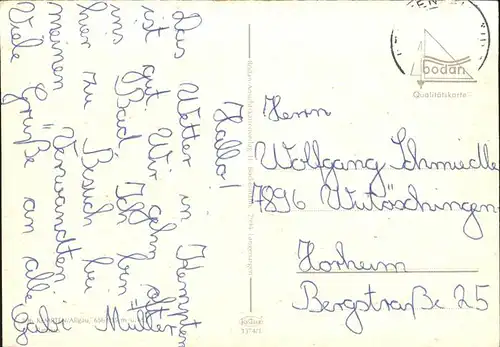 Hallo!
Das Wetter in Kempten
ist gut. Wir gehn oft
ins Bad. Ich bin
hier zu Besuch bei
meinen Verwandten.
Viele Grüße an alle
Gabi Müller
bodan
Qualitätskarte
Herrn
Wolfgang Schmiedle
7896 Wutöschingen
Horheim
Bergstraße 25